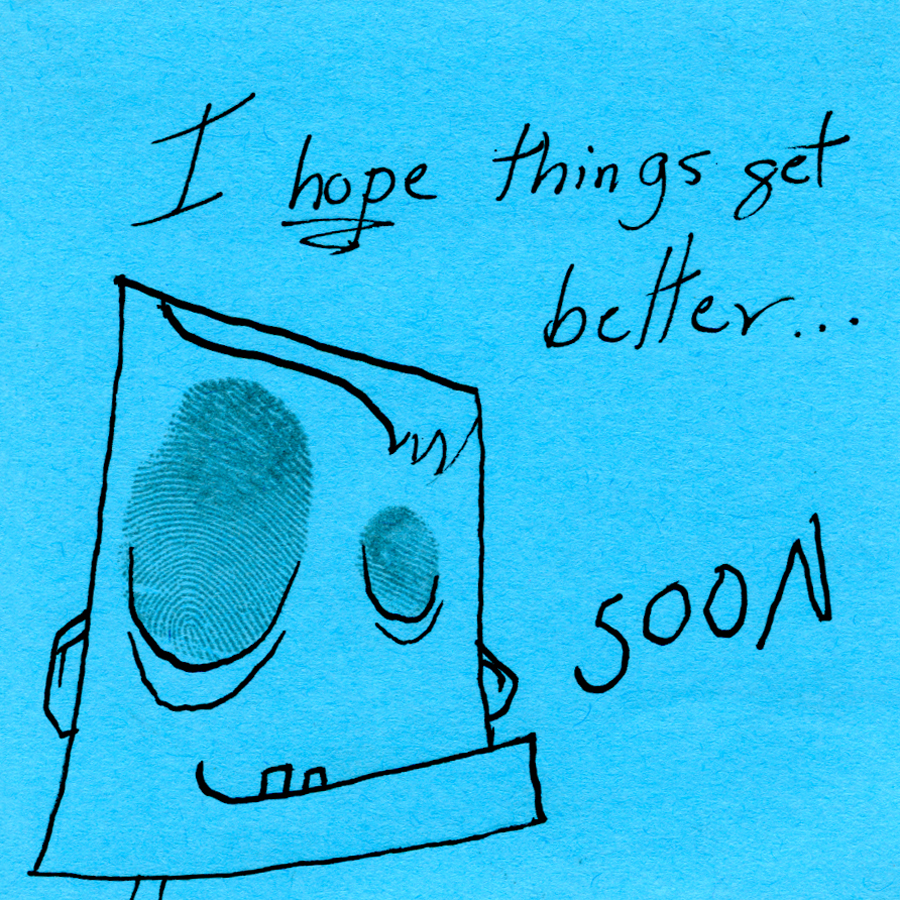 I hope things get
better...
SOON